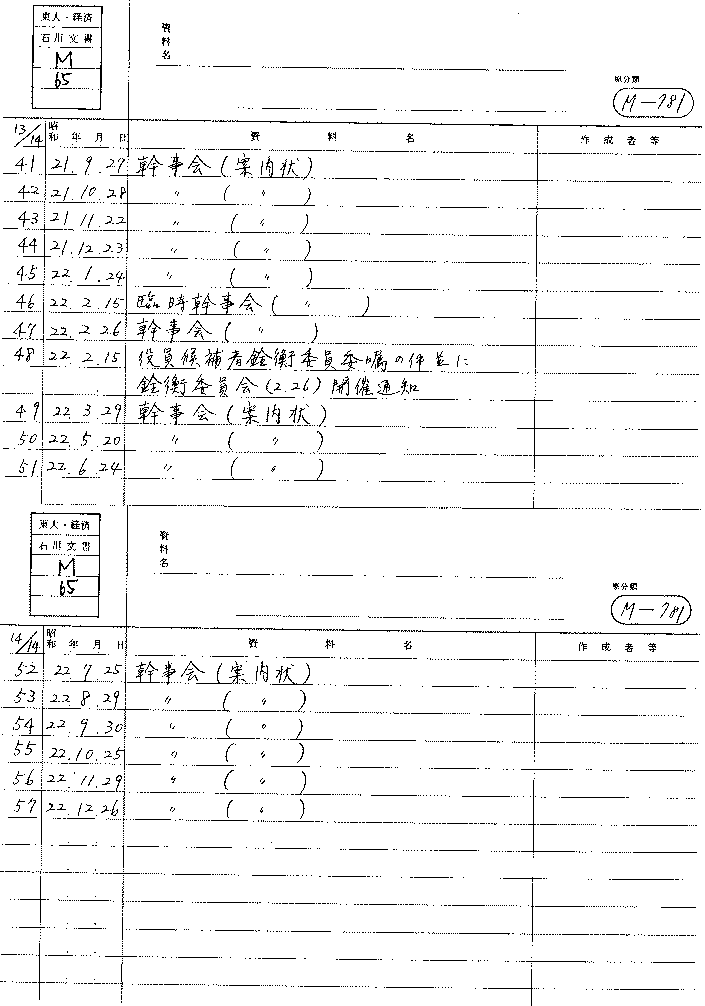 東大・経済
石川文書
M
65
資料名
原分類
M-781
13/14 昭和 年 月 日 資料名 作成者等
41 21. 9. 27 幹事会(案内状)
42 21. 10. 28 〃 ( 〃 )
43 21. 11. 22 〃 ( 〃 )
44 21. 12. 23 〃 ( 〃 )
45 22. 1. 24 〃 ( 〃 )
46 22. 2. 15 臨時幹事会( 〃 )
47 22. 2. 26 幹事会( 〃 )
48 22. 2. 15 役員候補者銓衡委員委嘱の件並に
銓衡委員会(2.26)開催通知
49 22. 3. 29 幹事会(案内状)
50 22. 5. 20 〃 ( 〃 )
51 22. 6. 24 〃 ( 〃 )
東大・経済
石川文書
M
65
資料名
原分類
M-781
14/14 昭和 年 月 日 資料名 作成者等
52 22. 7. 25 幹事会(案内状)
53 22. 8. 29 〃 ( 〃 )
54 22. 9. 30 〃 ( 〃 )
55 22. 10. 25 〃 ( 〃 )
56 22. 11. 29 〃 ( 〃 )
57 22. 12. 26 〃 ( 〃 )